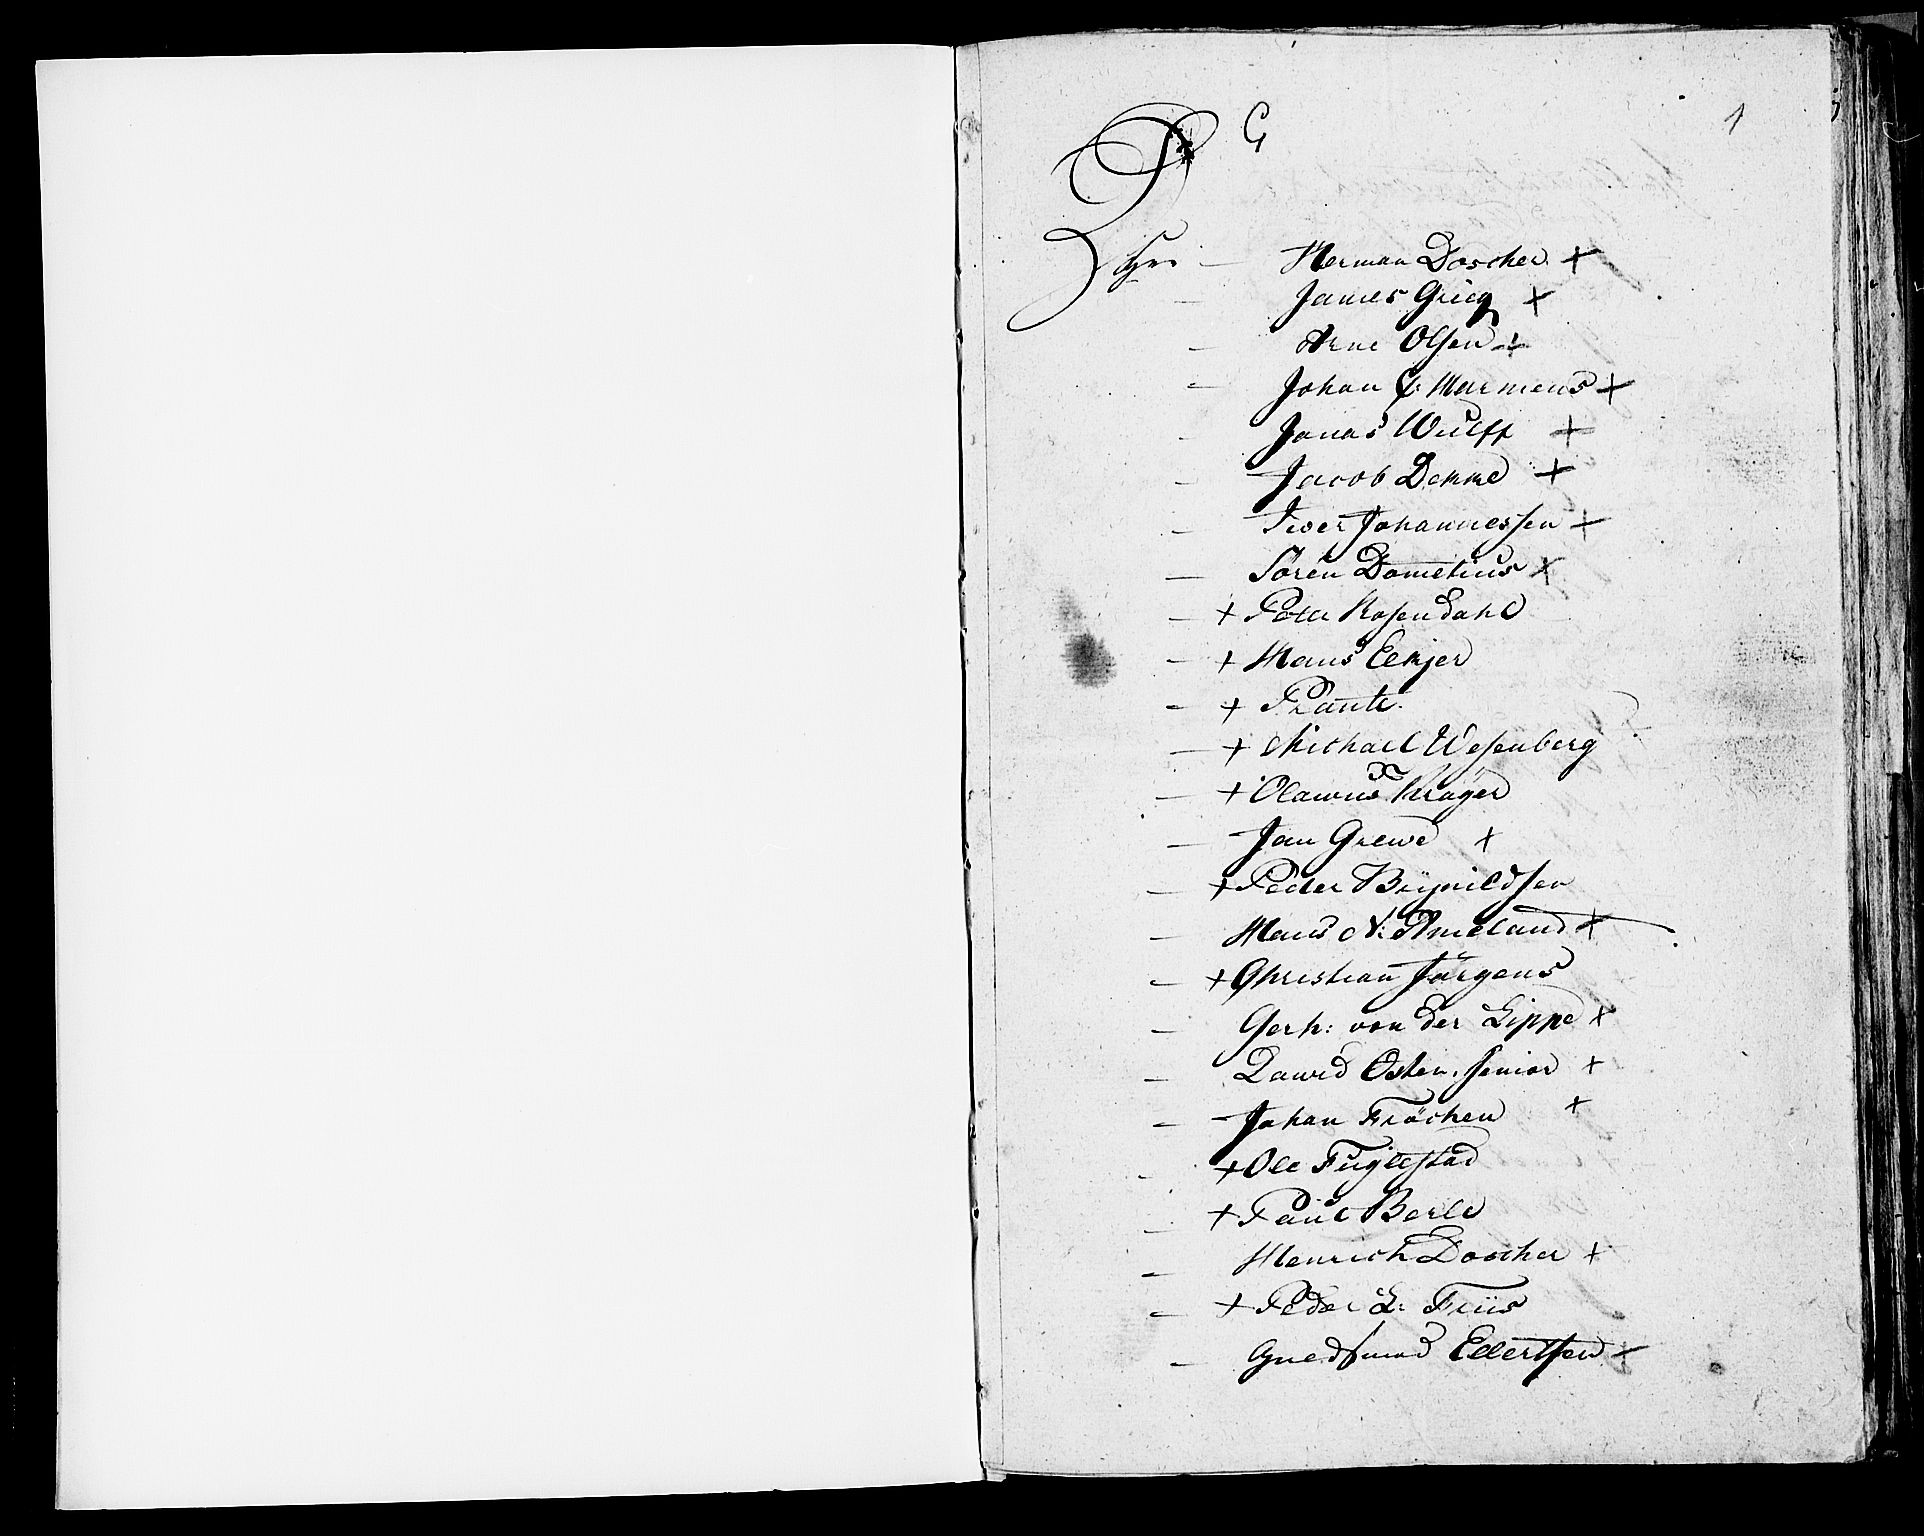 G
1
Herman Doscher +
— James Grieg +
— Arne Olsen +
— Johan C: Harmens +
— Jonas Wulff +
— Jacob Dekke +
— Iver Johannessen +
— Sören Dometius +
— + Peter Rosendahl
— + Hans Elkjer
— + Plante.
— + Michael Wesenberg
— + Olavius Kröyer
— Jan Grewe +
— + Peder Brynildsen
— Hans N: Ameland +
— + Christian Jürgens
— Gerh: von der Lippe +
— David Osten, Senior +
— Johan Fröchen +
— + Ole Fuglestad
— + Paul Berle
— Henrich Doscher +
— + Peder L: Friis
— Gudmund Ellertsen +